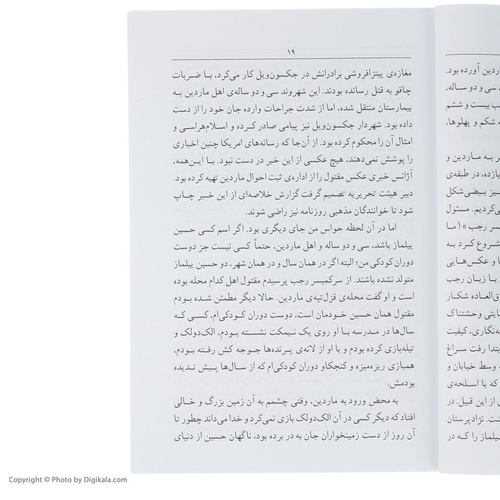 ۱۹
مغازه‌ی پیتزافروشی برادرانش در جکسون‌ویل کار می‌کرد، با ضربات
چاقو به قتل رسانده بودند. این شهروند سی و دو ساله‌ی اهل ماردین به
بیمارستان منتقل شده، اما از شدت جراحات وارده جان خود را از دست
داده بود. شهردار جکسون‌ویل نیز پیامی صادر کرده و اسلام‌هراسی و
امثال آن را محکوم کرده بود. از آن‌جا که رسانه‌های امریکا چنین اخباری
را پوشش نمی‌دهند، هیچ عکسی از این خبر در دست نبود. با این‌همه،
آژانس خبری عکس مقتول را از اداره‌ی ثبت احوال ماردین تهیه کرده بود.
دبیر هیئت تحریریه تصمیم گرفت گزارش خلاصه‌ای از این خبر چاپ
شود تا خوانندگان مذهبی روزنامه نیز راضی شوند.
اما در آن لحظه حواس من جای دیگری بود. اگر اسم کسی حسین
ییلماز باشد، سی و دو ساله و اهل ماردین، حتماً کسی نیست جز دوست
دوران کودکی من؛ البته اگر در همان سال و در همان شهر، دو حسین ییلماز
متولد نشده باشند. از سرکمیسر رجب پرسیدم مقتول اهل کدام محله بوده
است و او گفت محله‌ی قزل‌تپه‌ی ماردین. حالا دیگر مطمئن شده بودم
مقتول همان حسین خودمان است، دوست دوران کودکی‌ام، کسی که
سال‌ها در مدرسه با او روی یک نیمکت نشسته بودم، الک‌دولک و
تیله‌بازی کرده بودم و با او از لانه‌ی پرنده‌ها جوجه کش رفته بودم،
همبازی ریزه‌میزه و کنجکاو دوران کودکی‌ام که از سال‌ها پیش ندیده
بودمش.
به محض ورود به ماردین، وقتی چشمم به آن زمین بزرگ و خالی
افتاد که دیگر کسی در آن الک‌دولک بازی نمی‌کرد و خدا می‌داند چطور تا
آن روز از دست زمینخواران جان به در برده بود، ناگهان حسین از دنیای
ردین آورده بود.
سی و دو ساله،
بیست و ششم
شکم و پهلوها،
بر به ماردین و
یازده، در طبقه‌ی
میز بیضی‌شکل
کردیم. مسئول
رجب» (ما
شروع کرد به
و عکس‌هایی
با زبان رجب
ق‌العاده شکار
یتی وحشتناک
مه‌نگاری، کیفیت
بتدا رفت سراغ
وسط خیابان و
که با اسلحه‌ی
از این قبیل. در
ست. نژادپرستان
ییلماز را که در
Copyright © Photo by Digikala.com